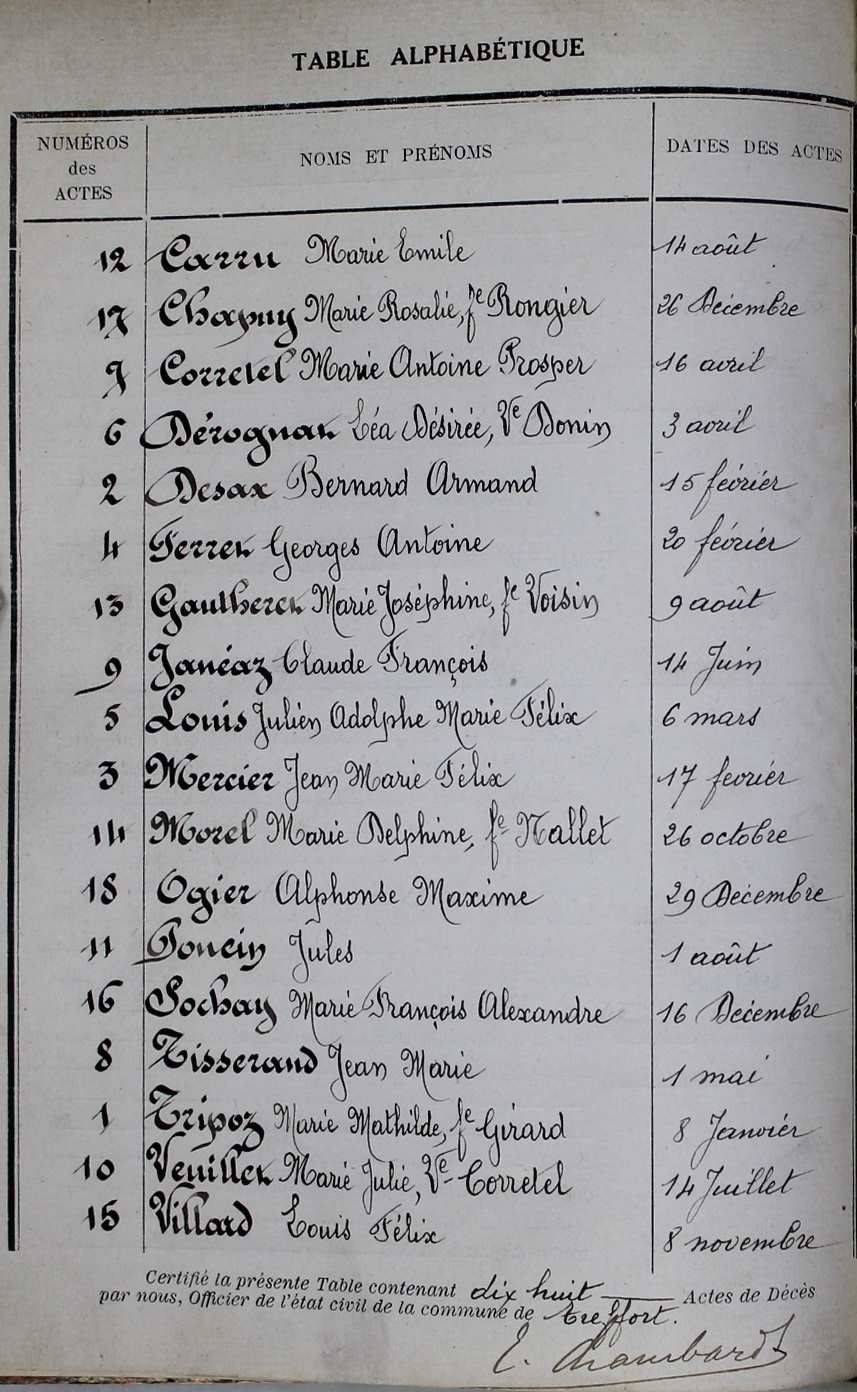 TABLE ALPHABÉTIQUE
NUMÉROS des ACTES NOMS ET PRÉNOMS DATES DES ACTES
12 Carru Marie Emile 14 août
17 Chapuy Marie Rosalie, fe Rongier 26 Décembre
7 Corretel Marie Antoine Prosper 16 avril
6 Dérognat Léa Désirée, Ve Donin 3 avril
2 Desax Bernard Armand 15 février
4 Ferret Georges Antoine 20 février
13 Gautheret Marie Joséphine, fe Voisin 9 août
9 Janéaz Claude François 14 Juin
5 Louis Julien Adolphe Marie Félix 6 mars
3 Mercier Jean Marie Félix 17 fevrier
14 Morel Marie Delphine, fe Nallet 26 octobre
18 Ogier Alphonse Maxime 29 Décembre
11 Poncin Jules 1 août
16 Sochay Marie François Alexandre 16 Décembre
8 Tisserand Jean Marie 1 mai
1 Tripoz Marie Mathilde, fe Girard 8 Janvier
10 Veuillet Marie Julie, Ve Corretel 14 Juillet
15 Villard Louis Félix 8 novembre
Certifié la présente Table contenant dix huit Actes de Décès
par nous, Officier de l'état civil de la commune de Treffort.
E. Chambard